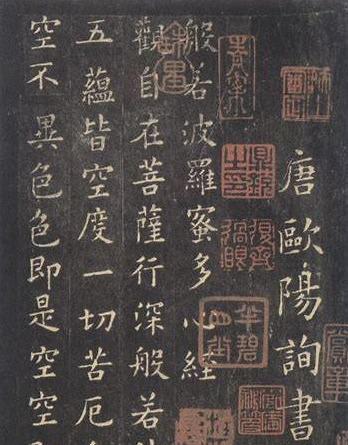 唐歐陽詢書
般若波羅蜜多心経
觀自在菩薩行深般若
五蘊皆空度一切苦厄
空不異色色即是空空